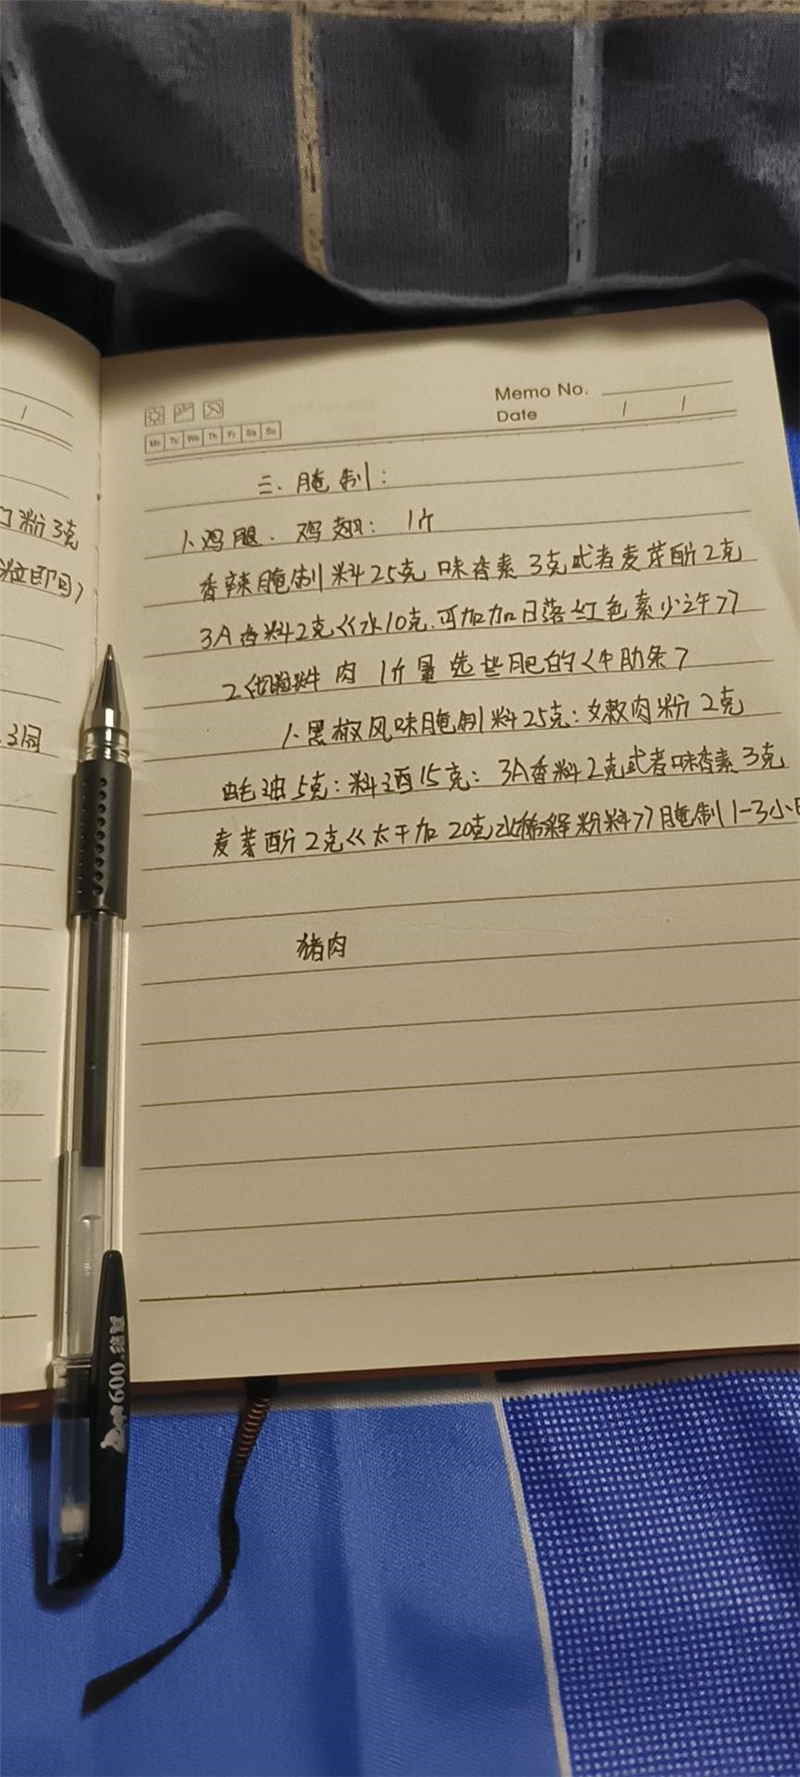 Memo No.
Date / /
Mo Tu We Th Fr Sa Su
三.腌制:
1.鸡腿、鸡翅: 1斤
香辣腌制料25克 味香素3克或者麦芽酚2克
3A香料2克<<水10克.可加加日落红色素少许>>
2 牛肉 1斤量选些肥的<牛肋条>
1.黑椒风味腌制料25克:嫩肉粉2克
蚝油5克:料酒15克: 3A香料2克或者味香素3克
麦芽酚2克<<太干加20克水稀释粉料>>腌制1-3小
猪肉
粉3克
/
真彩 009